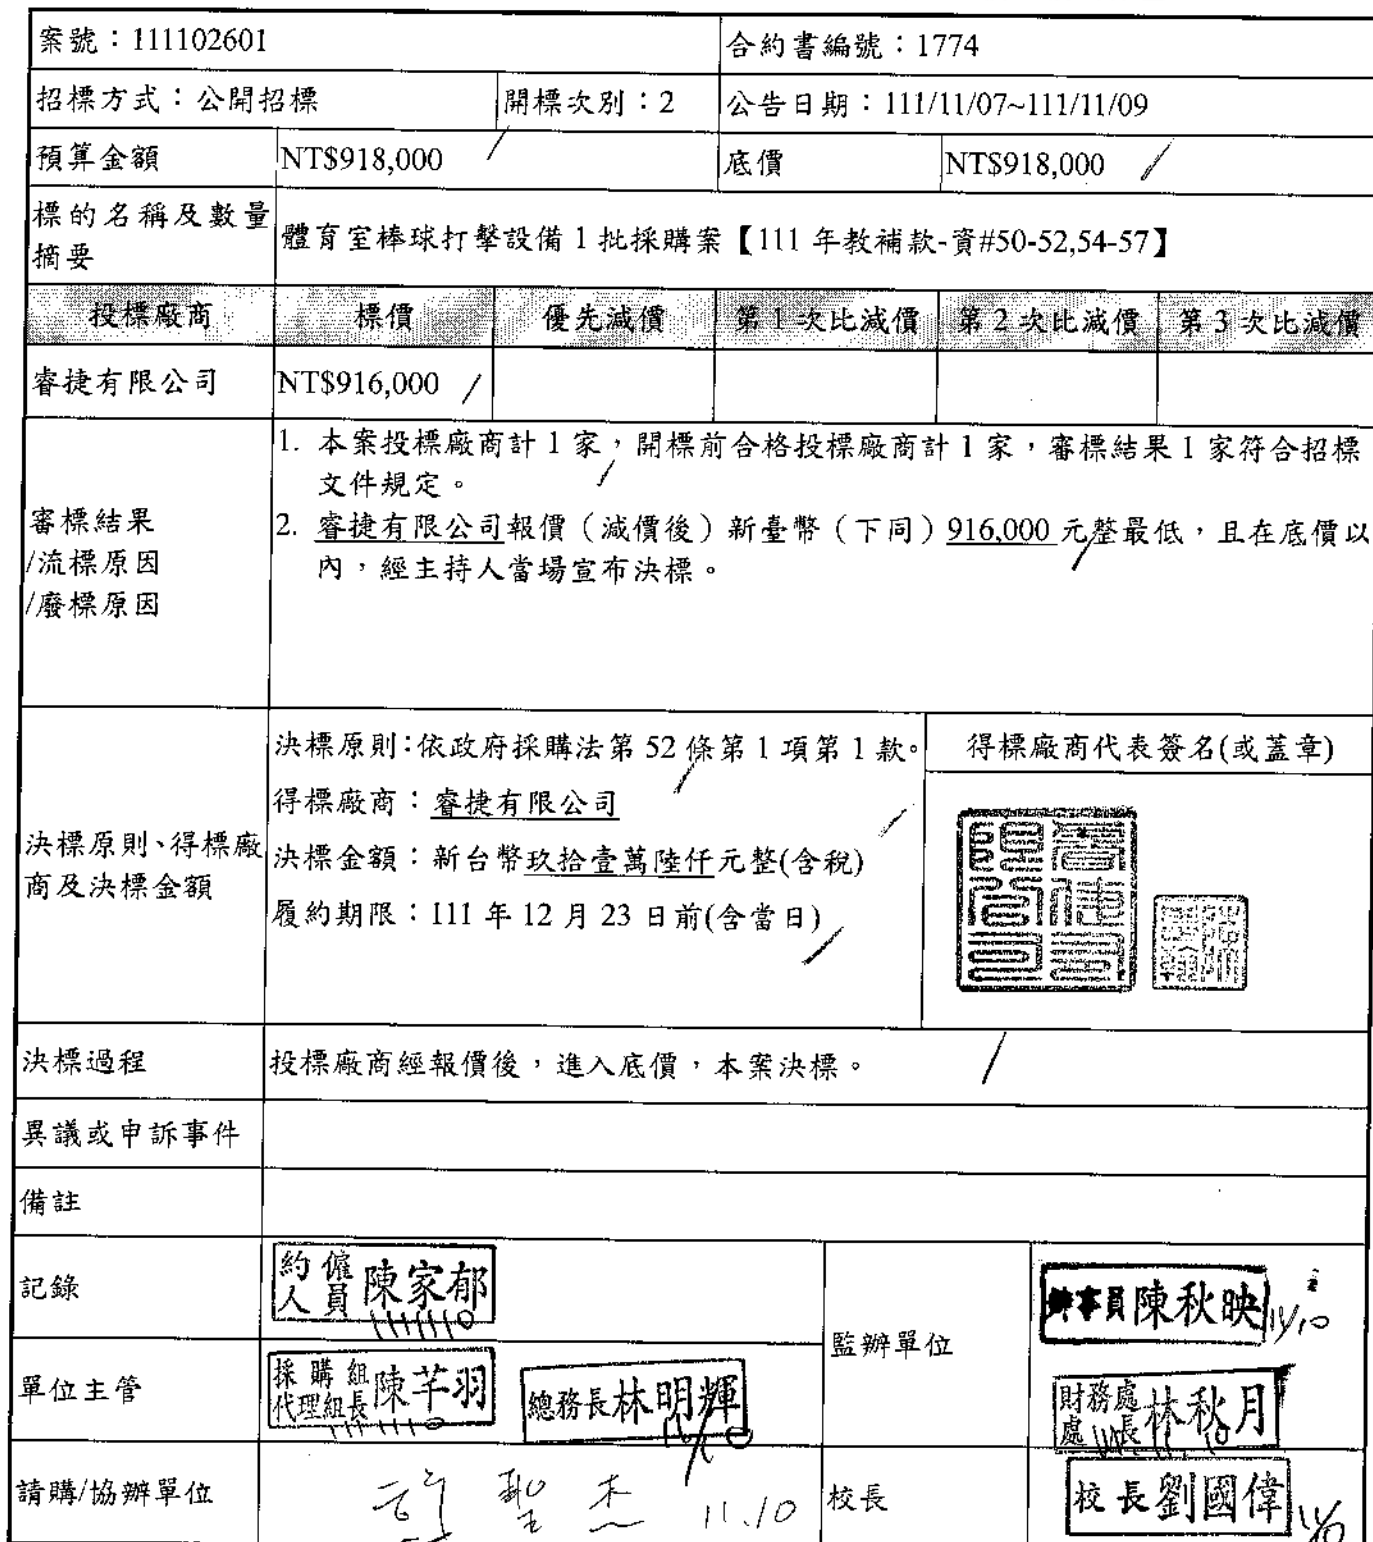 案號：111102601
合約書編號：1774
招標方式：公開招標
開標次別：2
公告日期：111/11/07~111/11/09
預算金額
NT$918,000
底價
NT$918,000
標的名稱及數量
摘要
體育室棒球打擊設備 1 批採購案【111 年教補款-資#50-52,54-57】
投標廠商
標價
優先減價
第 1 次比減價
第 2 次比減價
第 3 次比減價
睿捷有限公司
NT$916,000
審標結果
/流標原因
/廢標原因
1. 本案投標廠商計 1 家，開標前合格投標廠商計 1 家，審標結果 1 家符合招標
文件規定。
2. 睿捷有限公司報價（減價後）新臺幣（下同）916,000 元整最低，且在底價以
內，經主持人當場宣布決標。
決標原則、得標廠
商及決標金額
決標原則：依政府採購法第 52 條第 1 項第 1 款。
得標廠商：睿捷有限公司
決標金額：新台幣玖拾壹萬陸仟元整(含稅)
履約期限：111 年 12 月 23 日前(含當日)
得標廠商代表簽名(或蓋章)
決標過程
投標廠商經報價後，進入底價，本案決標。
異議或申訴事件
備註
記錄
約僱
人員
陳家郁
111110
監辦單位
辦事員陳秋映
11/10
單位主管
採購組
代理組長
陳芊羽
111110
總務長林明輝
財務處
處長
林秋月
請購/協辦單位
聖杰
11.10
校長
校長劉國偉